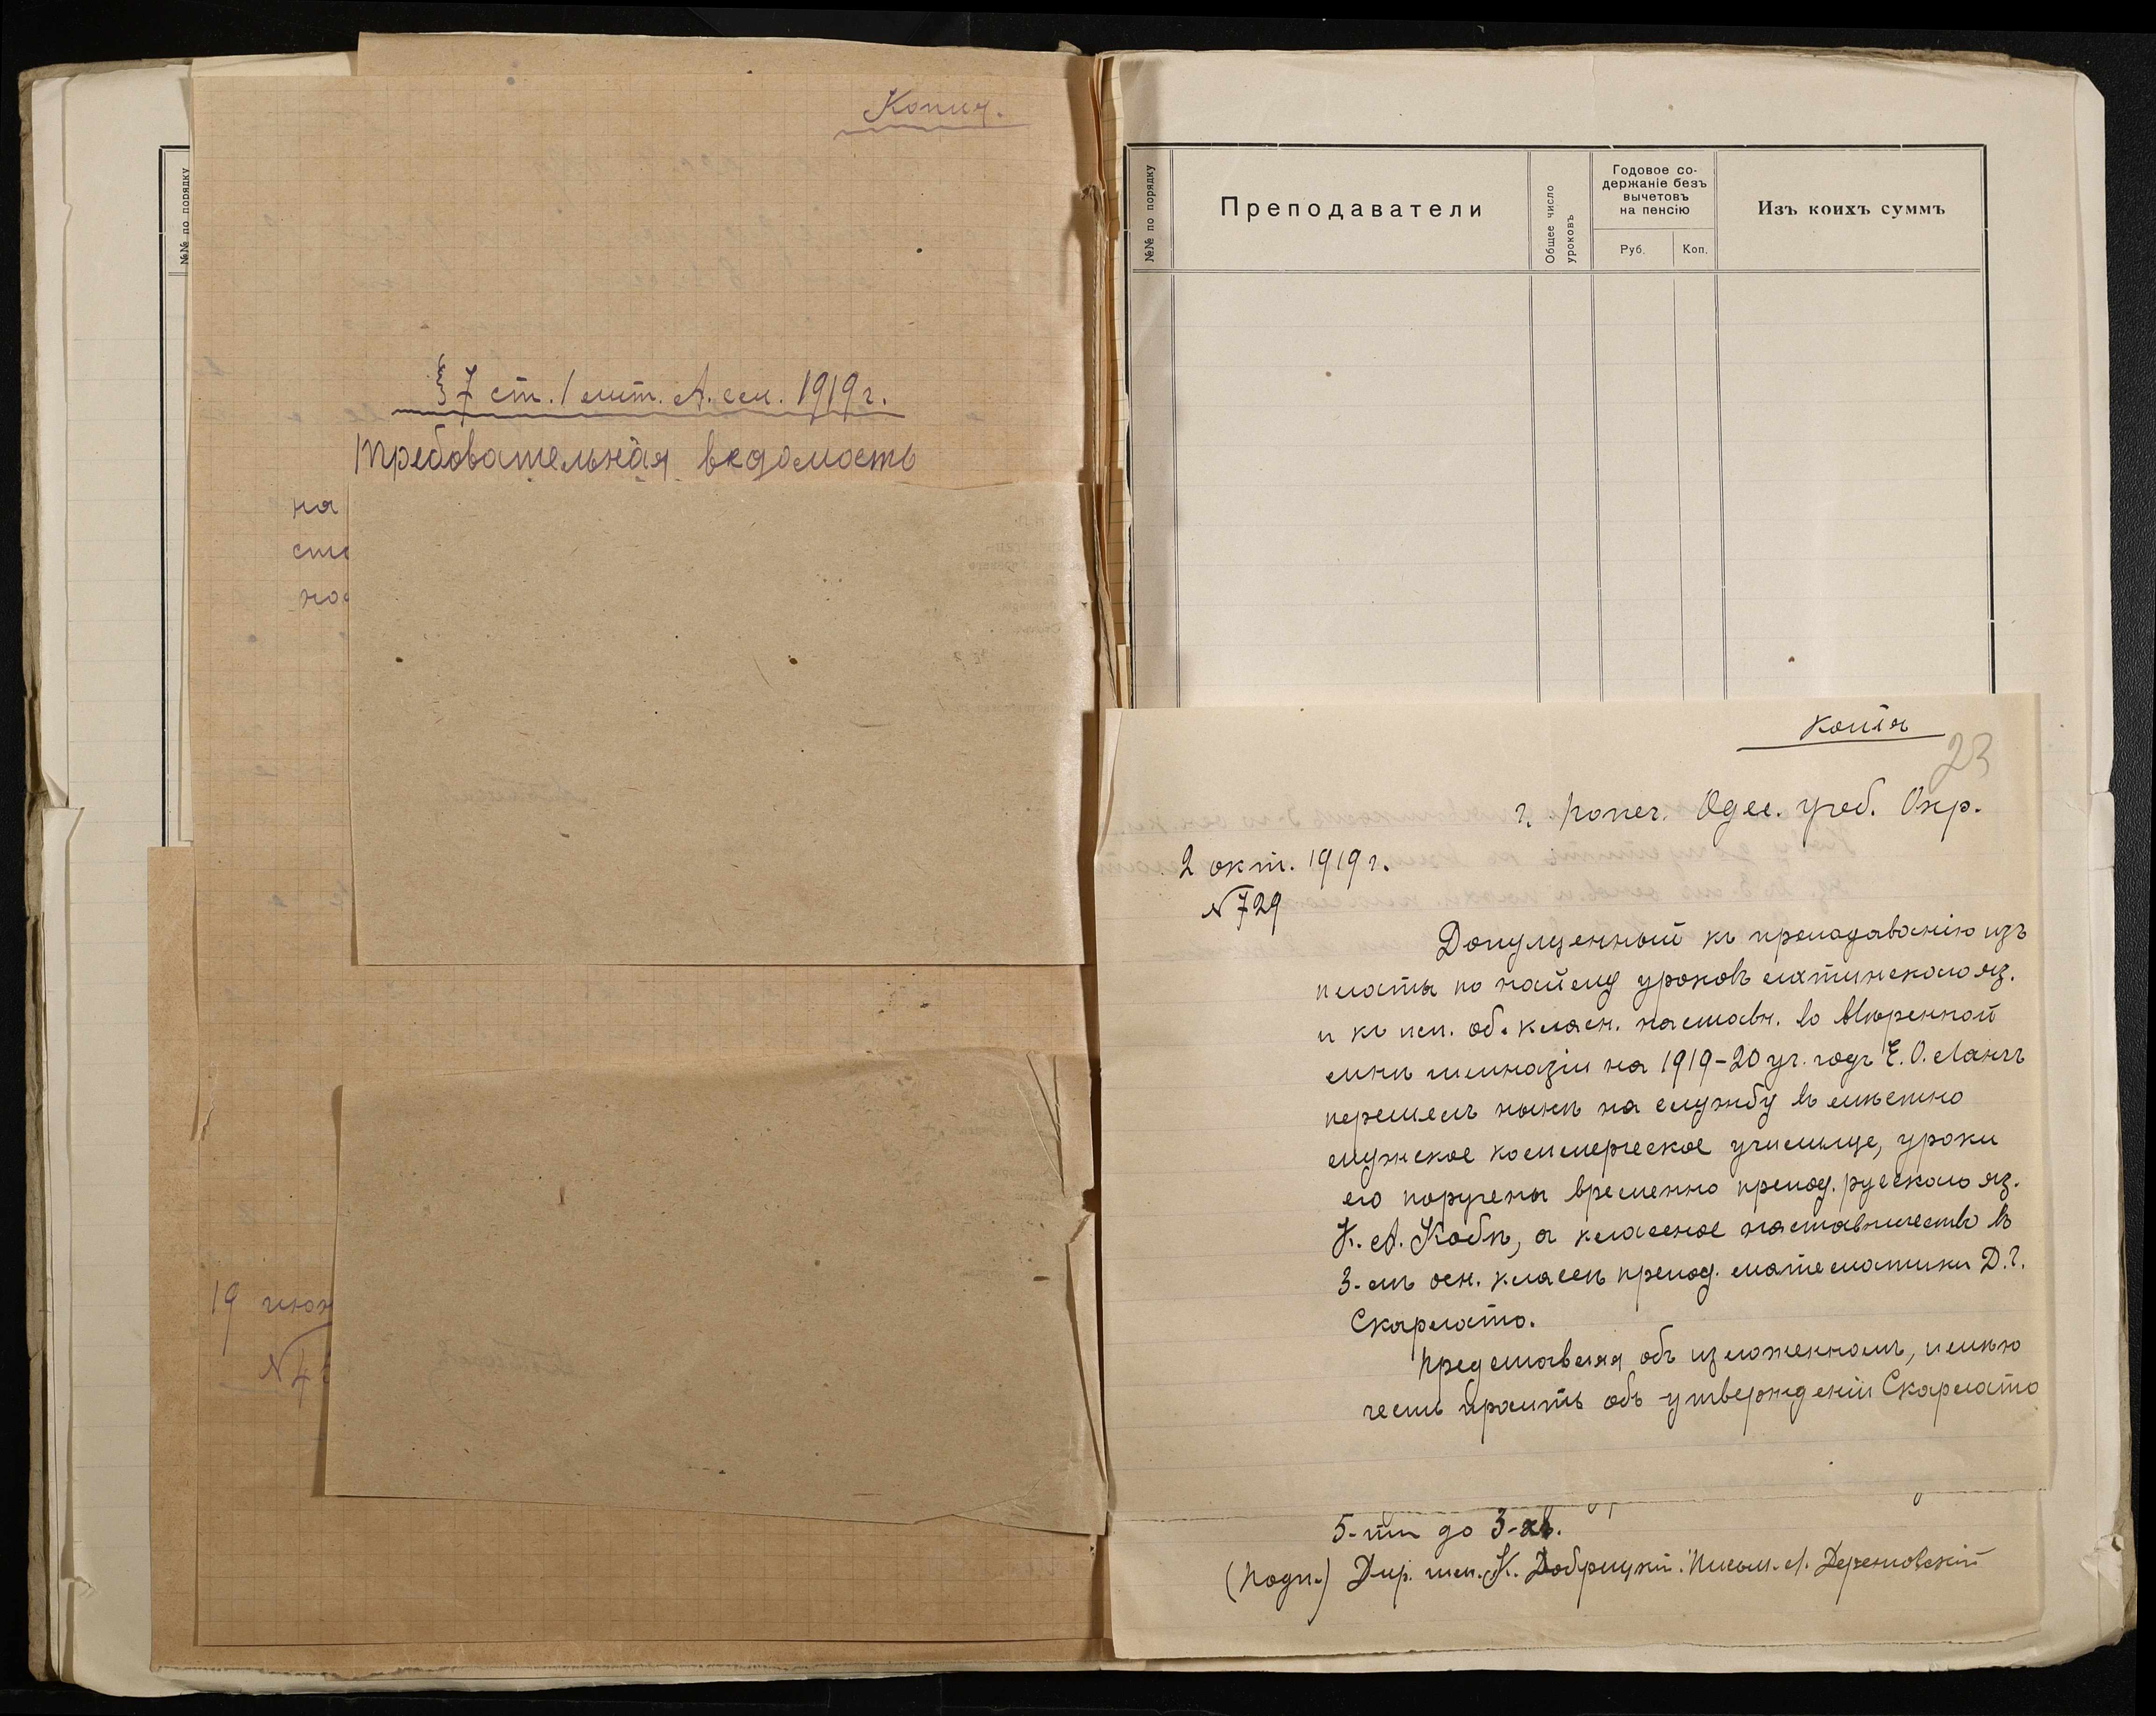 №№ по порядку
Копия.
§ 7 ст. 1 лит. А. см. 1919 г.
Требовательная ведомость
на
ст
но
19 июн
N 4
№№ по порядку
Преподаватели
Общее число уроковъ
Годовое со-
держаніе безъ
вычетовъ
на пенсію
Руб.
Коп.
Изъ коихъ суммъ
Копія
23
Г. Попеч. Одес. учеб. Окр.
2 окт. 1919 г.
N 729
Допущенный къ преподаванію изъ
платы по найму уроковъ латинскаго яз.
и къ исп. об. класн. наставн. во ввѣренной
мнѣ гимназіи на 1919-20 уч. годъ Е. О. Лангъ
перешелъ нынѣ на службу въ мѣстно
мужское коммерческое училище, уроки
его поручены временно препод. русскаго яз.
К. А. Кобѣ, а класное наставничество въ
3-мъ осн. класѣ препод. математики Д. Г.
Скарлато.
Представляя объ изложенномъ, имѣю
честь просить объ утвержденіи Скарлато
5-ти до 3-хъ.
(Подп.) Дир. гим. К. Добрицкій. Письм. А.